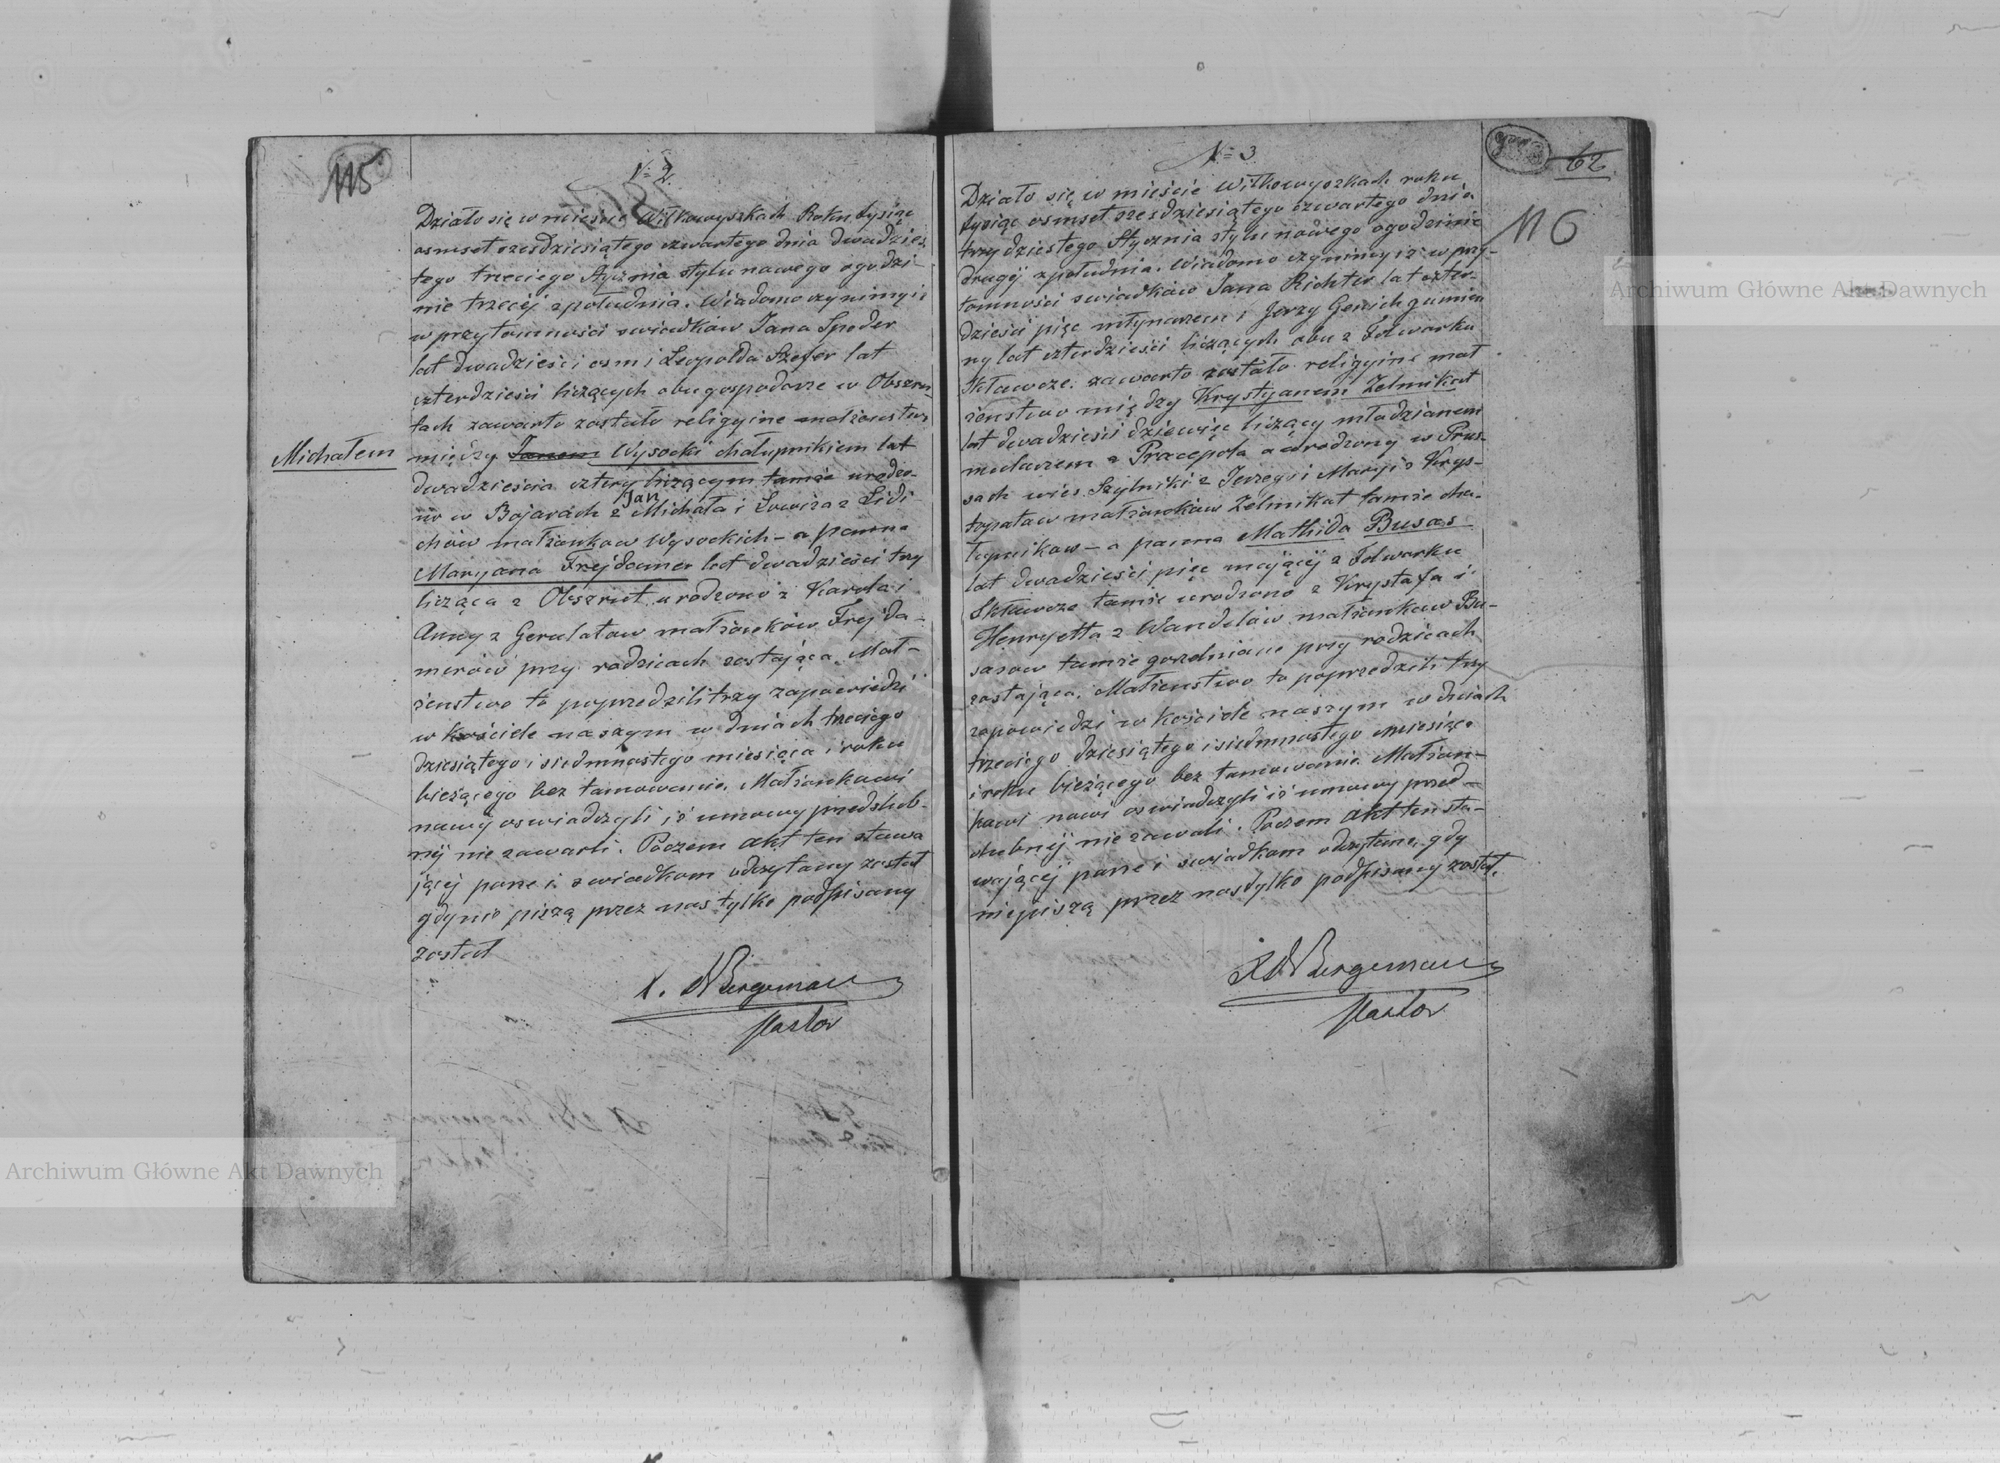 115
N= 2
Działo się w mieście Wiłkowyszkach Roku tysiąc
osmset sześdziesiątego czwartego dnia dwudzies
tego trzeciego Stycznia stylu nowego o godzi-
nie trzeciéj z południa. Wiadomo czynimy iż
w przytomności swiadków Jana Speder
lat dwadzieści osm i Leopolda Szefer lat
czterdzieści liczących obu gospodarze w Obszru-
tach zawarte zostało religyine małżeństwo
Michałem
między Janem Wysocki chałupnikiem lat
dwadzieścia cztery liczącym tamże urodzo-
Jan
no w Bojarach z Michała i Lowiza z Lidi-
chów małżonków Wysockich - a panna
Maryana Frejdamer lat dwadzieści trzy
licząca z Obszrut urodzono z Karola i
Anny z Gerulatow małżonków Frejda-
merów przy rodzicach zostająca. Mał-
żeństwo to poprzedzili trzy zapowiedzi
w kościele naszym w dniach trzeciego
dziesiątego i siedmnastego miesiąca i roku
bieżącego bez tamowania. Małżonkowi
nowi oswiadczyli iż umowy przedslub-
néj nie zawarli. Poczem akt ten stawa
jącéj parze i swiadkom odczytany został
gdy nie piszą przez nas tylko podpisany
został
X. A Bergeman
Pastor
62
116
N= 3
Działo się w mieście Wiłkowyszkach roku
tysiąc osmset szesdziesiątego czwartego dnia
trzydziestego Stycznia stylu nowego o godzinie
drugiéj z południa. Wiadomo czynimy iż w przy-
tomności swiadków Jana Richter lat czter-
dzieści pięc młynarzem i Jerzy Genich gumien
ny lat czterdzieści liczących obu z Folwarku
Skławcze. zawarto zostało religyine mał
żeństwo między Krystyanem Zelmikat
lat dwadzieści dziewięc liczący młodzianem
mularzem z Pracepola a urodzony w Prus-
sach wies Szylniki z Jerzego i Maryi z Krys-
topatow małżonków Zelmikat tamże cha-
łupnikow - a panna Mathida Busas
lat dwadzieści pięc mającéj z Folwarku
Skławcze tamże urodzono z Krystofa i
Henryetta z Wandelów małżonkow Bu-
sasow tamże gorzelniane przy rodzicach
zostająca. Małżenstwo to poprzedzili trzy
zapowiedzi w kościele naszym w dniach
trzeciego dziesiątego i siedmnastego miesiąca
i roku bieżącego bez tamowania. Małżon-
kowi nowi oswiadczyli iż umowy przed-
slubnéj nie zawarli. Poczem akt ten sta-
wającéj parze i swiadkom odczytano, gdy
nie piszą przez nas tylko podpisany został.
X A Bergeman
Pastor
Archiwum Główne Akt Dawnych
Archiwum Główne Akt Dawnych